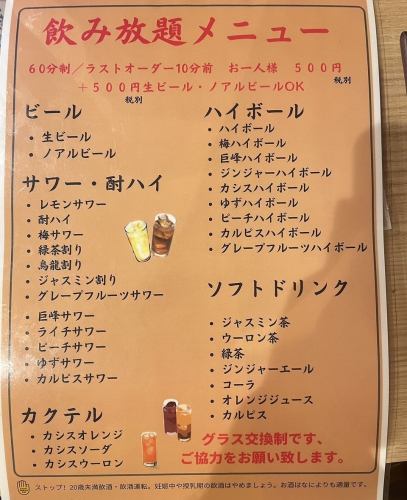 飲み放題メニュー
60分制／ラストオーダー10分前 お一人様 500円
税別
＋500円生ビール・ノアルビールOK
税別
ビール
・生ビール
・ノアルビール
サワー・酎ハイ
・レモンサワー
・酎ハイ
・梅サワー
・緑茶割り
・烏龍割り
・ジャスミン割り
・グレープフルーツサワー
・巨峰サワー
・ライチサワー
・ピーチサワー
・ゆずサワー
・カルピスサワー
カクテル
・カシスオレンジ
・カシスソーダ
・カシスウーロン
ハイボール
・ハイボール
・梅ハイボール
・巨峰ハイボール
・ジンジャーハイボール
・カシスハイボール
・ゆずハイボール
・ピーチハイボール
・カルピスハイボール
・グレープフルーツハイボール
ソフトドリンク
・ジャスミン茶
・ウーロン茶
・緑茶
・ジンジャーエール
・コーラ
・オレンジジュース
・カルピス
グラス交換制です、
ご協力をお願い致します。
ストップ！20歳未満飲酒・飲酒運転。妊娠中や授乳期の飲酒はやめましょう。お酒はなによりも適量です。